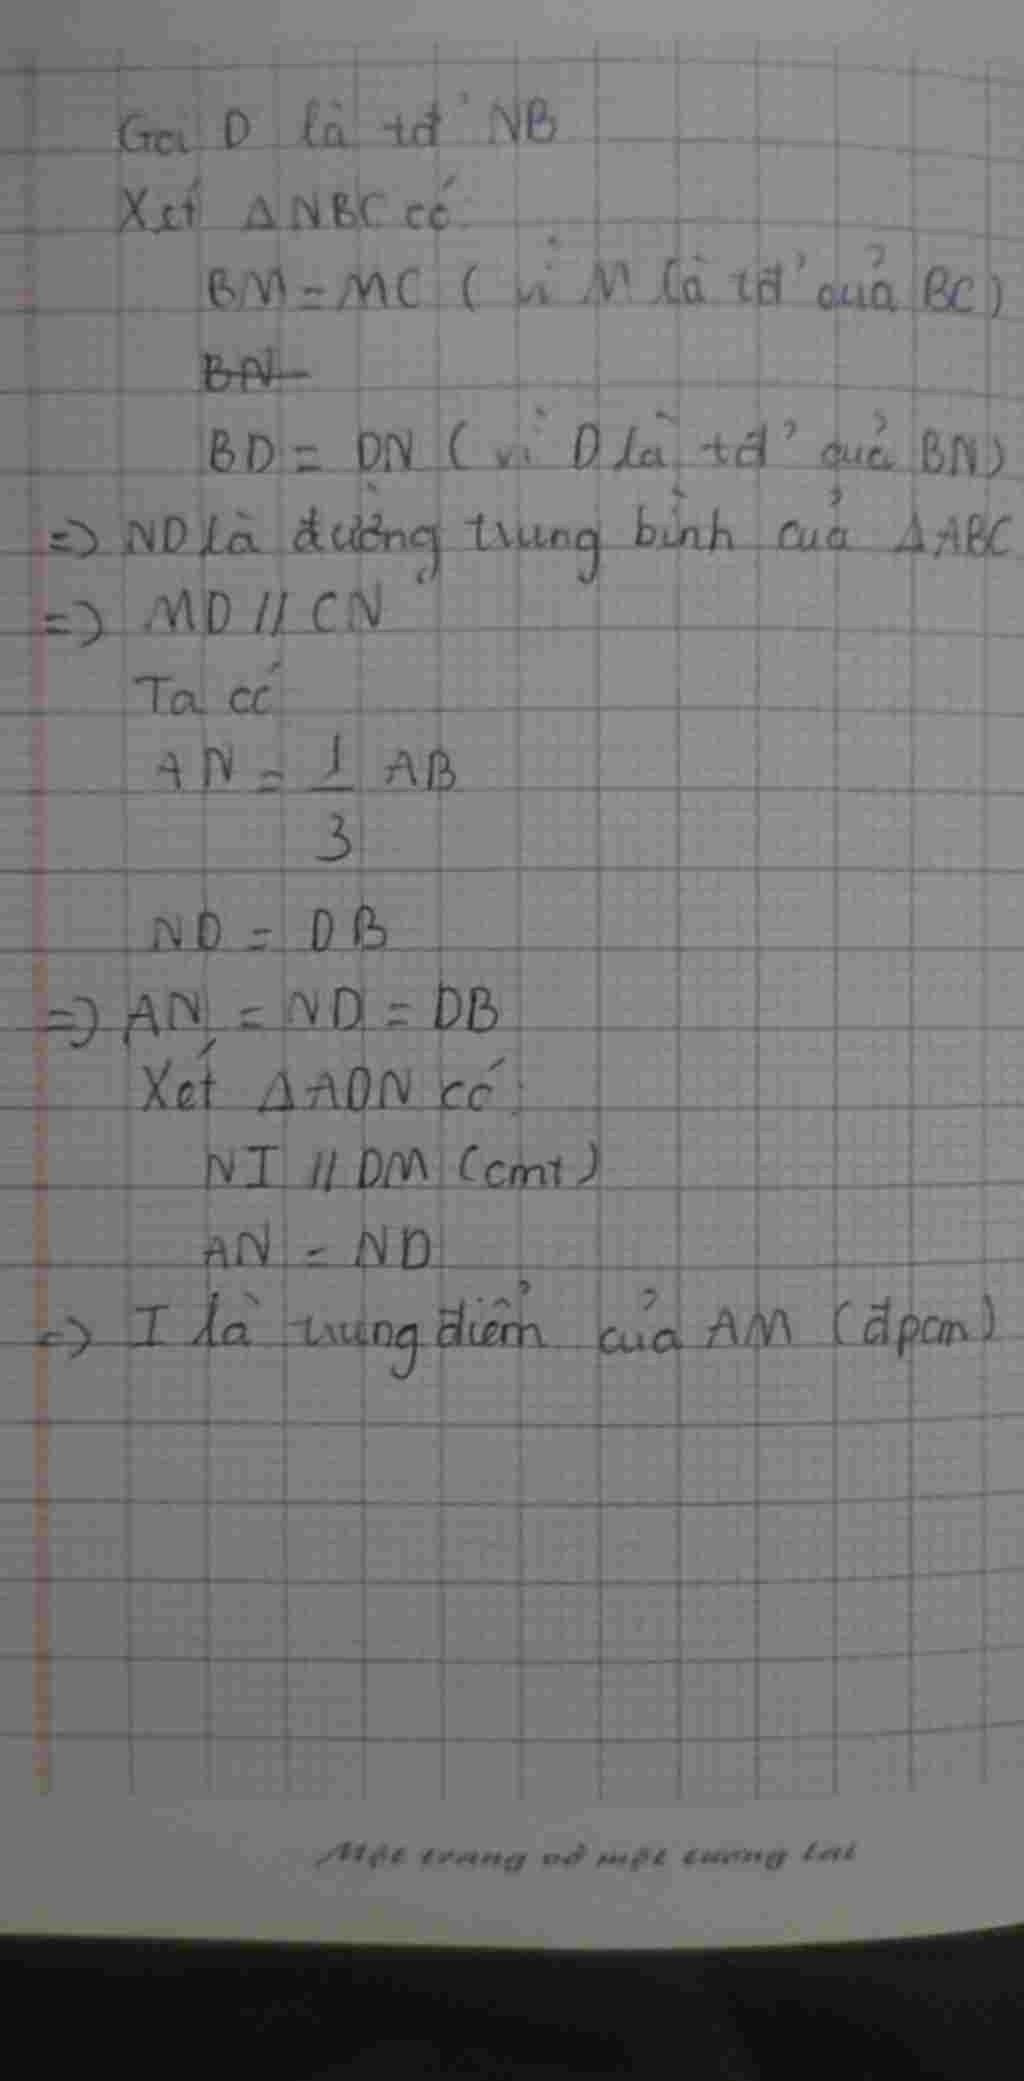 Gọi D là tđ' NB
Xét ΔNBC có
BM = MC ( vì M là tđ' của BC)
BN
BD = DN ( vì D là tđ' của BN)
=> ND là đường trung bình của ΔABC
=> MD // CN
Ta có
AN = 1/3 AB
ND = DB
=> AN = ND = DB
Xét ΔADN có:
NI // DM (cmt)
AN = ND
=> I là trung điểm của AM (đpcm)
Một trang vở một tương lai